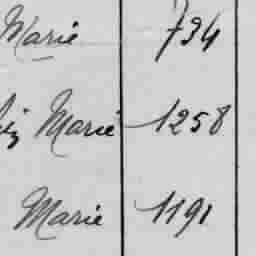 Marie 734
Marie 1258
Marie 1191